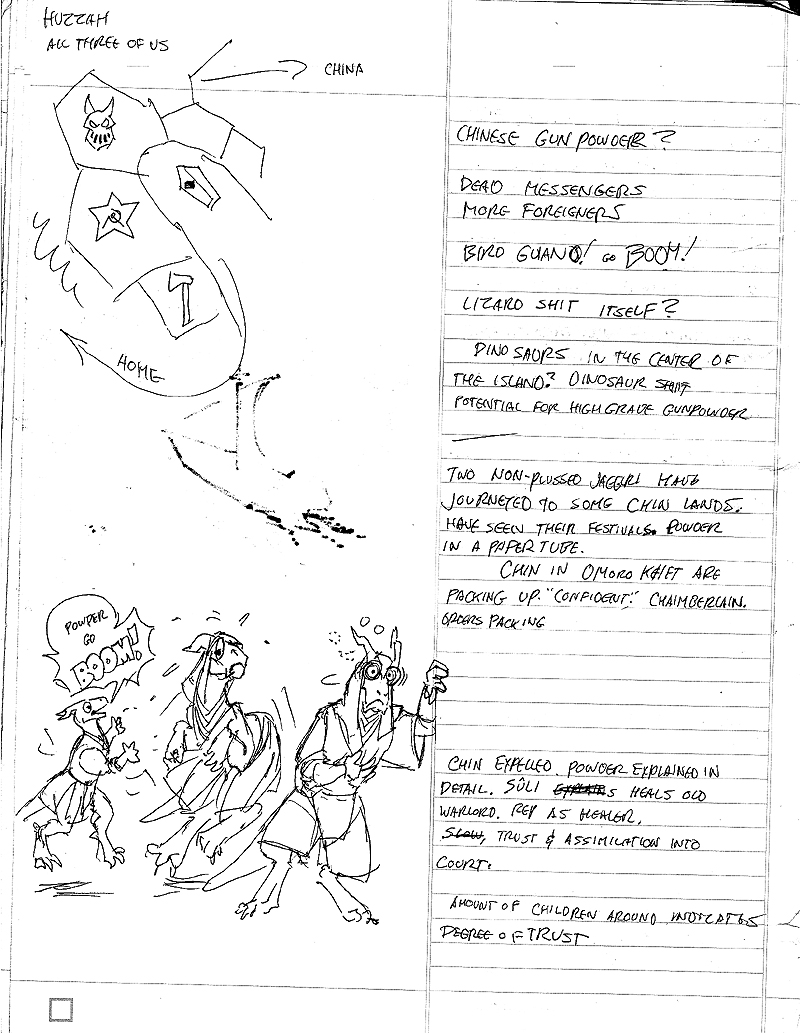 HUZZAH
ALL THREE OF US
CHINA
HOME
POWDER
GO
BOOM!
CHINESE GUNPOWDER?
DEAD MESSENGERS
MORE FOREIGNERS
BIRD GUANO! GO BOOM!
LIZARD SHIT ITSELF?
DINOSAURS IN THE CENTER OF
THE ISLAND? DINOSAUR SHIT
POTENTIAL FOR HIGH GRADE GUNPOWDER
TWO NON-PLUSSED JAEGERI HAVE
JOURNEYED TO SOME CHIN LANDS.
HAVE SEEN THEIR FESTIVALS. POWDER
IN A PAPER TUBE.
CHIN IN OMORO ARE
PACKING UP. "CONFIDENT." CHAIMBERLAIN.
ORDERS PACKING
CHIN EXPELLED. POWDER EXPLAINED IN
DETAIL. SÛLI HEALS OLD
WARLORD. REP AS HEALER.
SLOW, TRUST & ASSIMILATION INTO
COURT.
AMOUNT OF CHILDREN AROUND INDICATES
DEGREE OF TRUST